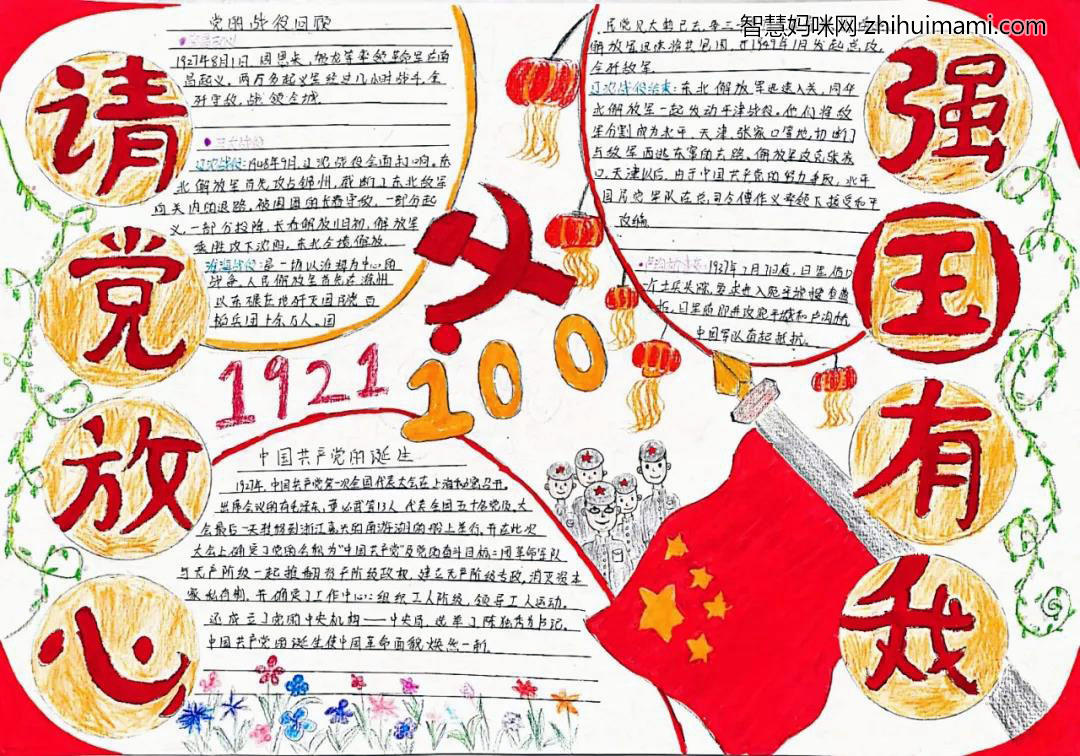 智慧妈咪网 zhihuimami.com
请党放心
强国有我
党的战役回顾
1927年8月1日,周恩来、贺龙等率领革命军在南
昌起义,两万多起义军经过几小时战斗,全
歼守敌,战领全城。
三大战役
辽沈战役:1948年9月,辽沈战役全面打响。东
北解放军首先攻占锦州,截断了东北敌军
向关内的退路,被围困的长春守敌,一部分起
义,一部分投降,长春解放。11月初,解放军
乘胜攻下沈阳,东北全境解放。
淮海战役:是一场以徐州为中心的
战争。人民解放军首先在徐州
以东碾庄地歼灭国民党
解放军迅速将其包围,于1949年1月发起总攻,
全歼敌军。
东北解放军迅速入关,同华
北解放军一起发动平津战役。他们将敌
军分割成为北平、天津、张家口等地,切断了
与敌军西逃东窜的去路。解放军攻克张家
口、天津以后,由于中国共产党的努力争取,北平
国民党军队在总司令傅作义率领下接受和平
改编。
1937年7月7日夜,日军借口
一个士兵失踪,要求进入宛平城搜查
日军
进攻宛平城和卢沟桥,
中国军队奋起抵抗。
1921
100
中国共产党的诞生
1921年,中国共产党第一次全国代表大会在上海秘密召开。
出席会议的有毛泽东、董必武等13人,代表全国五十名党员,大
会最后一天转移到浙江嘉兴的南湖湖的船上举行,并在此次
大会上确定了党的名称为“中国共产党”及党的奋斗目标:用革命军队
与无产阶级一起推翻资产阶级政权,建立无产阶级专政,消灭资本
家私有制,并确定了工作中心:组织工人阶级,领导工人运动。
还成立了党的中央机构——中央局,选举了陈独秀为书记。
中国共产党的诞生使中国革命面貌焕然一新。